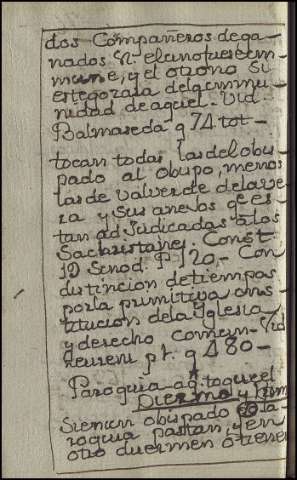 dos Compañeros de ga-
nados Si el uno fuese em-
mune, y el otro no Si
este gozara de la ymmu-
nidad de aquel. Vid
Balmaseda q 74 tot-
tocan todas las del obis-
pado al obispo, menos
las de valverde de la ve
ra y sus anexos que es-
tan adjudicadas a los
Sachristanes. Const
10 Sinod. P. 120.- Con
distincion de tiempos
por la primitiva cons-
titucion de la Yglesia
y derecho comun. Vid
pt. q 4 80-
Paroquia aq. toque el
Diezmo y
Si en un obispado
roquia pastan, y en
otro duermen